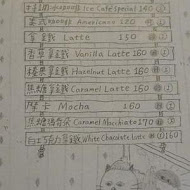 Ice Café Special 140
美式 Americano 120
拿鐵 Latte 130
香草拿鐵 Vanilla Latte 160
榛果拿鐵 Hazelnut Latte 160
焦糖拿鐵 Caramel Latte 160
摩卡 Mocha 160
焦糖瑪奇朵 Caramel Macchiato 170
白巧克力拿鐵 White Chocolate Latte 160